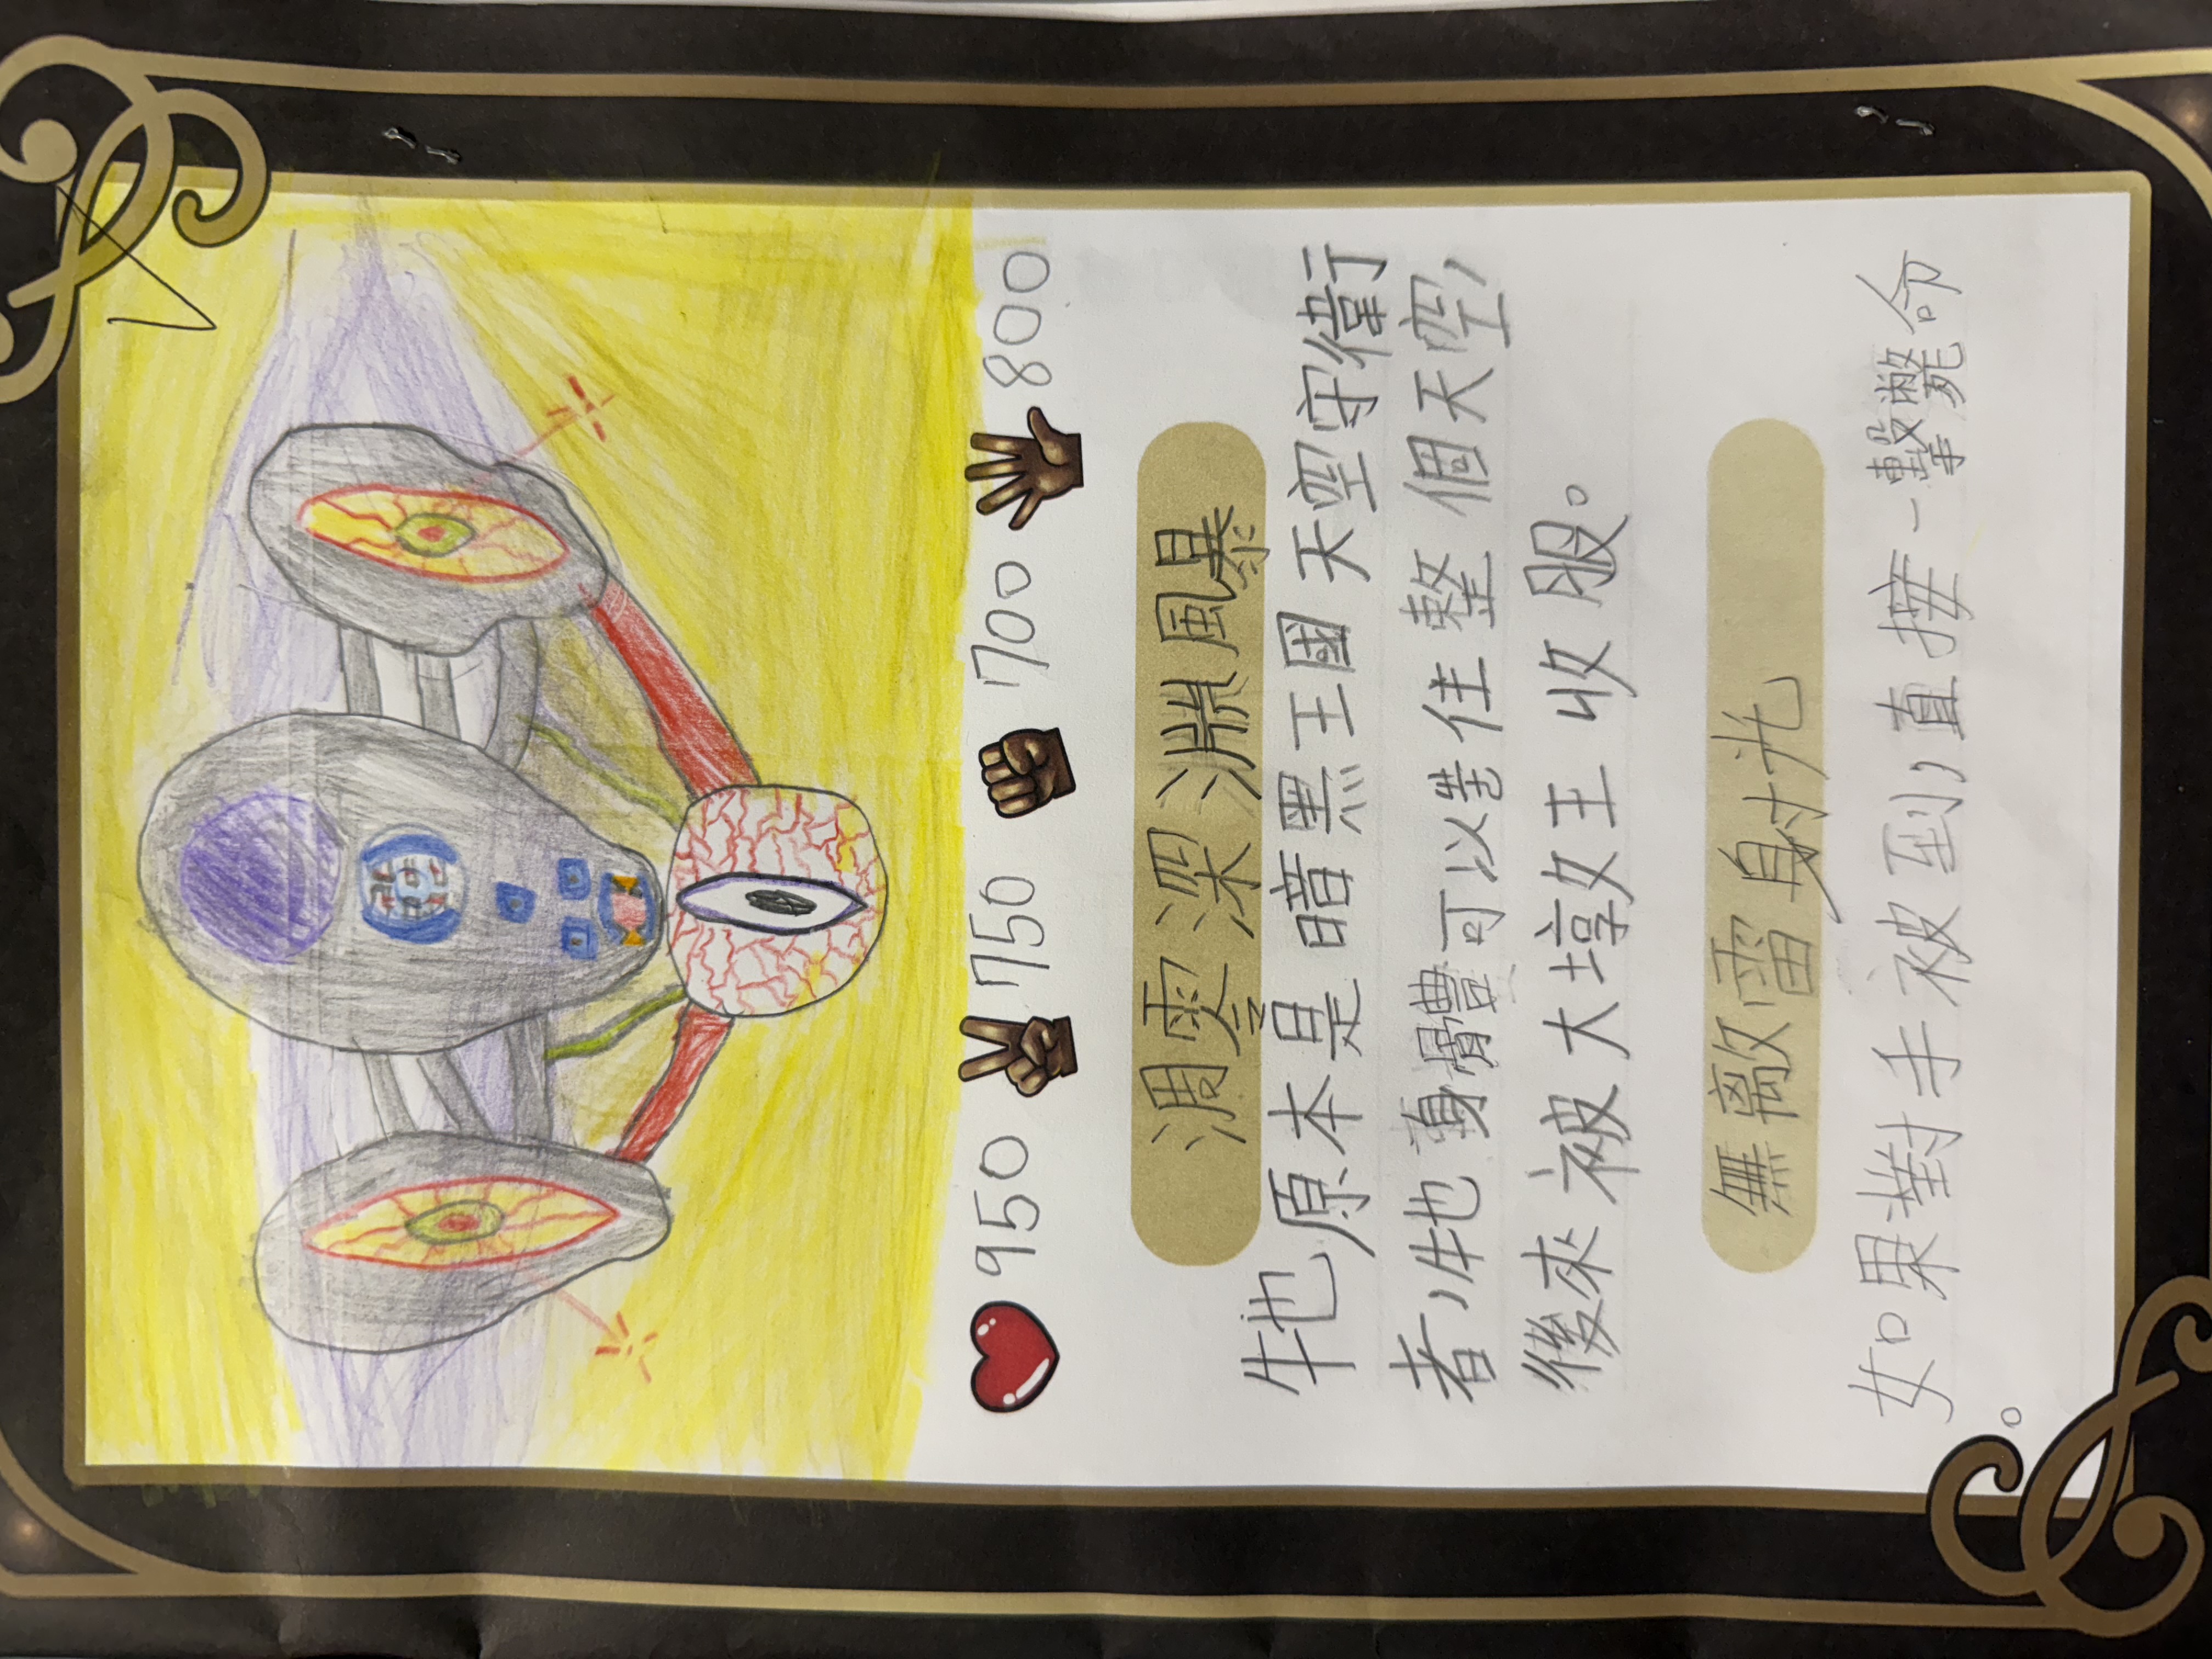 950 750 700 800
凋雲深淵風暴
牠原本是暗黑王國天空守衛
者，牠身體可以 住整個天空，
後來被大 女王收服。
無敵雷射光
如果對手被到，直接一擊斃命
。